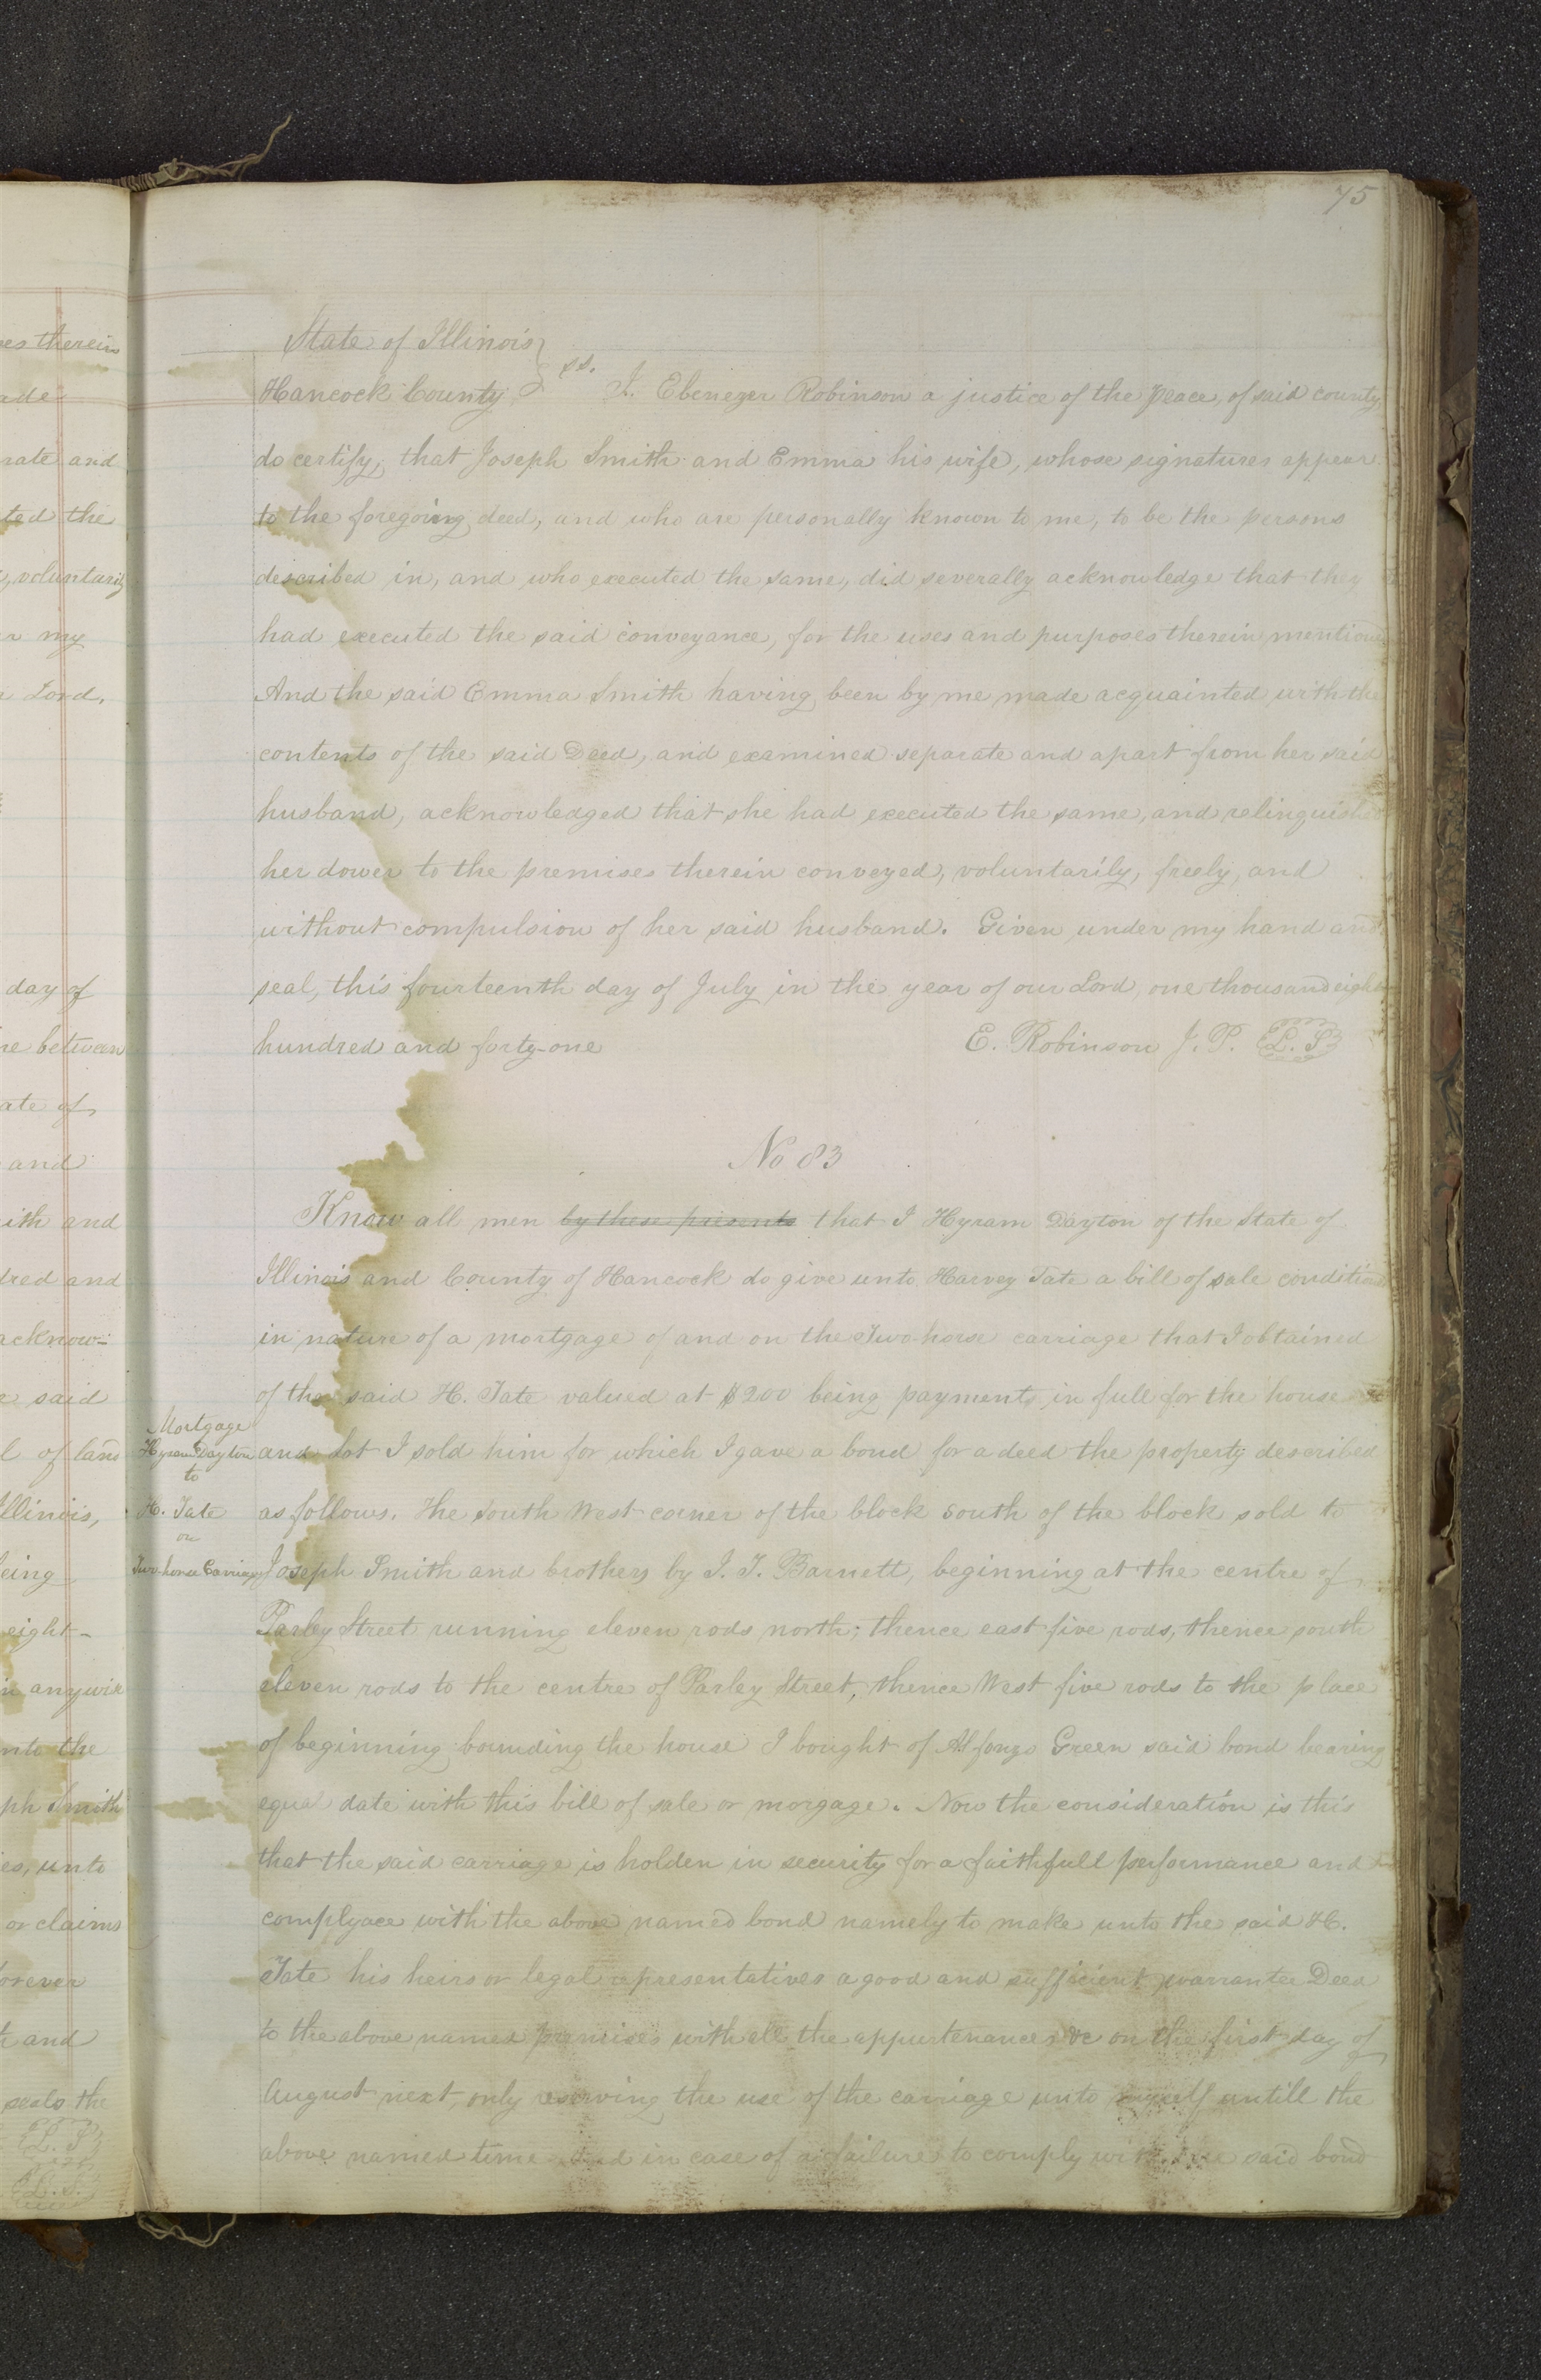 es therein
ade
rate and
ted the
, voluntarily
r my
r Lord,
day of
re between
ate of
and
ith and
dred and
acknow-
r said
l of land
Illinois,
being
eight-
in anywise
nto the
ph Smith
es, unto
or claims
forever
h and
seals the
L. S.
L. S.
75
State of Illinois }
Hancock County } ss. I. Ebenezer Robinson a justice of the peace, of said county,
do certify, that Joseph Smith and Emma his wife, whose signatures appear
to the foregoing deed, and who are personally known to me, to be the persons
described in, and who executed the same, did severally acknowledge that they
had executed the said conveyance, for the uses and purposes therein mentioned
And the said Emma Smith having been by me made acquainted with the
contents of the said Deed, and examined separate and apart from her said
husband, acknowledged that she had executed the same, and relinquished
her dower to the premises therein conveyed, voluntarily, freely, and
without compulsion of her said husband. Given under my hand and
seal, this fourteenth day of July in the year of our Lord, one thousand eight
hundred and forty-one E. Robinson J. P. L. S
No 83
Know all men by these presents that I Hyram Dayton of the State of
Illinois and County of Hancock do give unto Harvey Tate a bill of sale condition
in nature of a mortgage of and on the Two horse carriage that I obtained
of the said H. Tate valued at $200 being payments in full for the house
Mortgage
Hyram Dayton
to
H. Tate
on
Two-horse Carriage
and Lot I sold him for which I gave a bond for a deed the property described
as follows. The South West corner of the block South of the block sold to
Joseph Smith and brothers by J. T. Barnett, beginning at the centre of
Parley Street running eleven rods north; thence east five rods, thence south
eleven rods to the centre of Parley Street, thence West five rods to the place
of beginning bounding the house I bought of Alfonzo Green said bond bearing
equal date with this bill of sale or morgage. Now the consideration is this
that the said carriage is holden in security for a faithfull performance and
complyace with the above named bond namely to make unto the said H.
Tate his heirs or legal representatives a good and sufficient warrantee Deed
to the above named premises with all the appurtenances &c on the first day of
August next, only reserving the use of the carriage unto myself untill the
above named time and in case of a failure to comply with the said bond